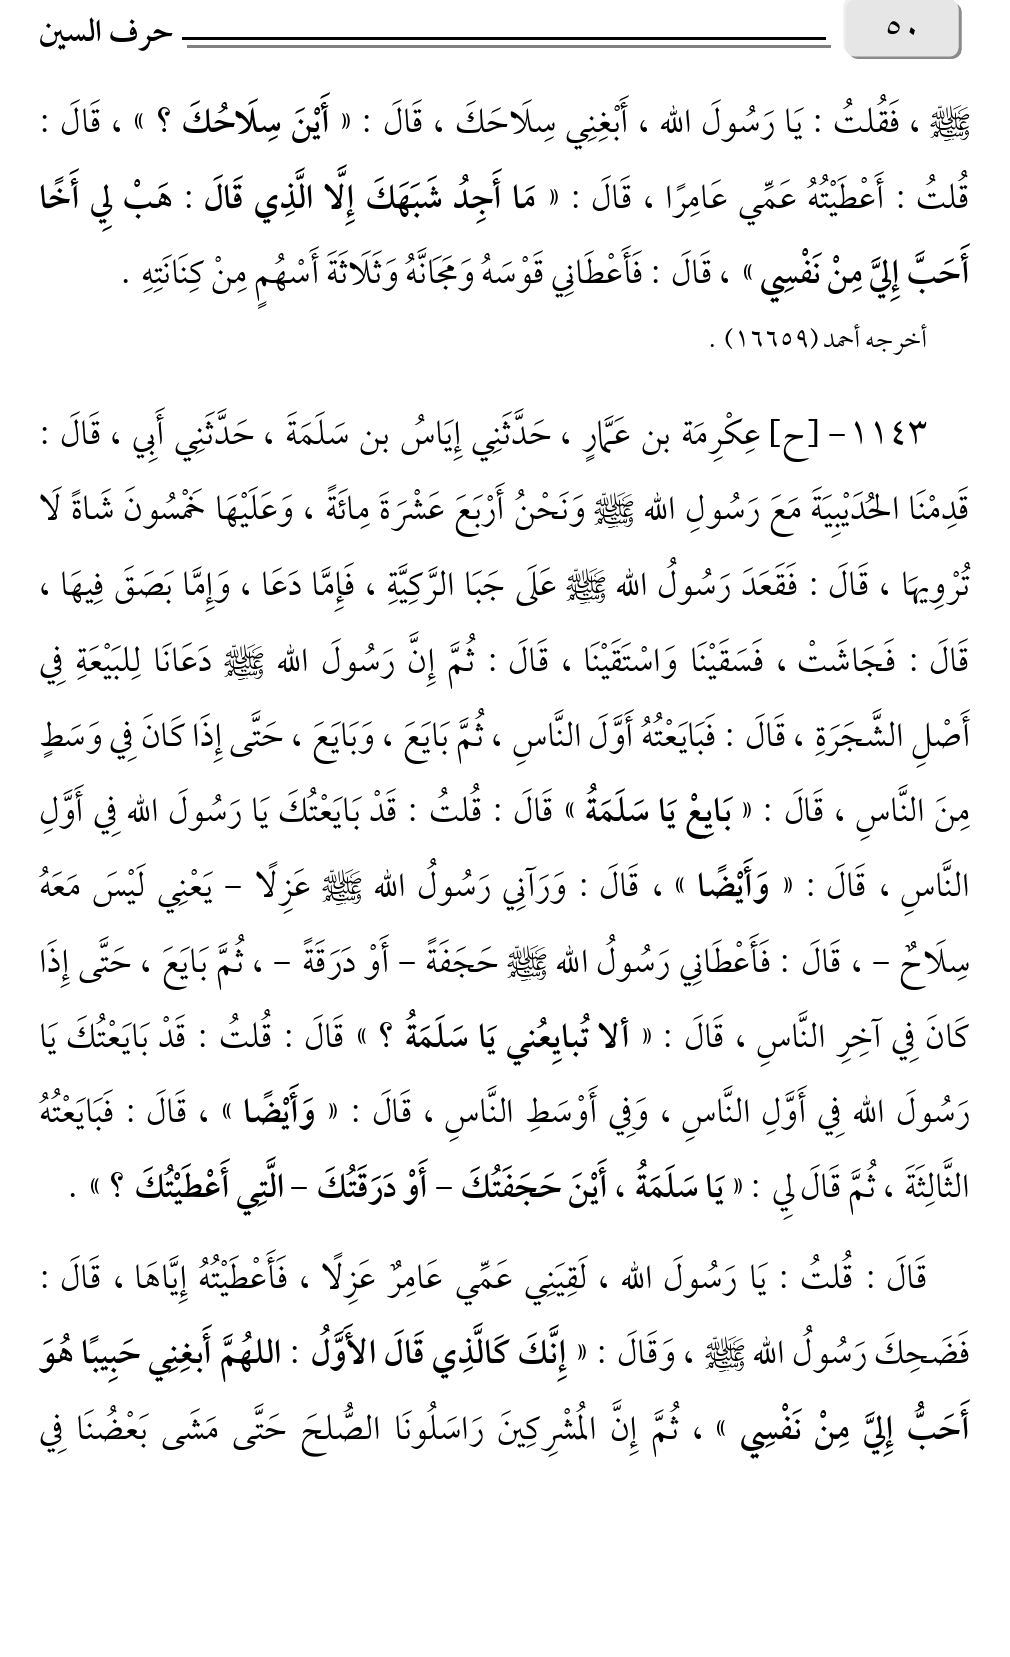 ٥٠
حرف السين
ﷺ ، فَقُلتُ : يَا رَسُولَ الله ، أَبْغِنِي سِلَاحَكَ ، قَالَ : « أَيْنَ سِلَاحُكَ ؟ » ، قَالَ :
قُلتُ : أَعْطَيْتُهُ عَمِّي عَامِرًا ، قَالَ : « مَا أَجِدُ شَبَهَكَ إِلَّا الَّذِي قَالَ : هَبْ لِي أَخًا
أَحَبَّ إِلَيَّ مِنْ نَفْسِي » ، قَالَ : فَأَعْطَانِي قَوْسَهُ وَمَجَانَّهُ وَثَلَاثَةَ أَسْهُمٍ مِنْ كِنَانَتِهِ .
أخرجه أحمد (١٦٦٥٩) .
١١٤٣- [ح] عِكْرِمَة بن عَمَّارٍ ، حَدَّثَنِي إِيَاسُ بن سَلَمَةَ ، حَدَّثَنِي أَبِي ، قَالَ :
قَدِمْنَا الحُدَيْبِيَةَ مَعَ رَسُولِ الله ﷺ وَنَحْنُ أَرْبَعَ عَشْرَةَ مِائَةً ، وَعَلَيْهَا خَمْسُونَ شَاةً لَا
تُرْوِيهَا ، قَالَ : فَقَعَدَ رَسُولُ الله ﷺ عَلَى جَبَا الرَّكِيَّةِ ، فَإِمَّا دَعَا ، وَإِمَّا بَصَقَ فِيهَا ،
قَالَ : فَجَاشَتْ ، فَسَقَيْنَا وَاسْتَقَيْنَا ، قَالَ : ثُمَّ إِنَّ رَسُولَ الله ﷺ دَعَانَا لِلبَيْعَةِ فِي
أَصْلِ الشَّجَرَةِ ، قَالَ : فَبَايَعْتُهُ أَوَّلَ النَّاسِ ، ثُمَّ بَايَعَ ، وَبَايَعَ ، حَتَّى إِذَا كَانَ فِي وَسَطٍ
مِنَ النَّاسِ ، قَالَ : « بَايِعْ يَا سَلَمَةُ » قَالَ : قُلتُ : قَدْ بَايَعْتُكَ يَا رَسُولَ الله فِي أَوَّلِ
النَّاسِ ، قَالَ : « وَأَيْضًا » ، قَالَ : وَرَآنِي رَسُولُ الله ﷺ عَزِلًا – يَعْنِي لَيْسَ مَعَهُ
سِلَاحٌ – ، قَالَ : فَأَعْطَانِي رَسُولُ الله ﷺ حَجَفَةً – أَوْ دَرَقَةً – ، ثُمَّ بَايَعَ ، حَتَّى إِذَا
كَانَ فِي آخِرِ النَّاسِ ، قَالَ : « ألا تُبايِعُني يَا سَلَمَةُ ؟ » قَالَ : قُلتُ : قَدْ بَايَعْتُكَ يَا
رَسُولَ الله فِي أَوَّلِ النَّاسِ ، وَفِي أَوْسَطِ النَّاسِ ، قَالَ : « وَأَيْضًا » ، قَالَ : فَبَايَعْتُهُ
الثَّالِثَةَ ، ثُمَّ قَالَ لِي : « يَا سَلَمَةُ ، أَيْنَ حَجَفَتُكَ – أَوْ دَرَقَتُكَ – الَّتِي أَعْطَيْتُكَ ؟ » .
قَالَ : قُلتُ : يَا رَسُولَ الله ، لَقِيَنِي عَمِّي عَامِرٌ عَزِلًا ، فَأَعْطَيْتُهُ إِيَّاهَا ، قَالَ :
فَضَحِكَ رَسُولُ الله ﷺ ، وَقَالَ : « إِنَّكَ كَالَّذِي قَالَ الأَوَّلُ : اللهُمَّ أَبغِنِي حَبِيبًا هُوَ
أَحَبُّ إِلَيَّ مِنْ نَفْسِي » ، ثُمَّ إِنَّ المُشْرِكِينَ رَاسَلُونَا الصُّلحَ حَتَّى مَشَى بَعْضُنَا فِي